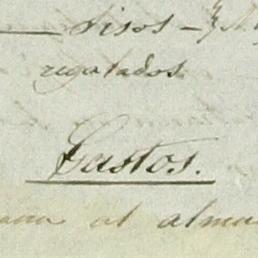 Pisos
regalados.
Gastos.
al alma